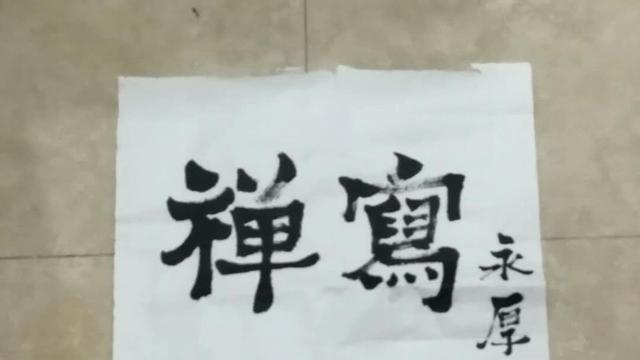 永厚
寫禅